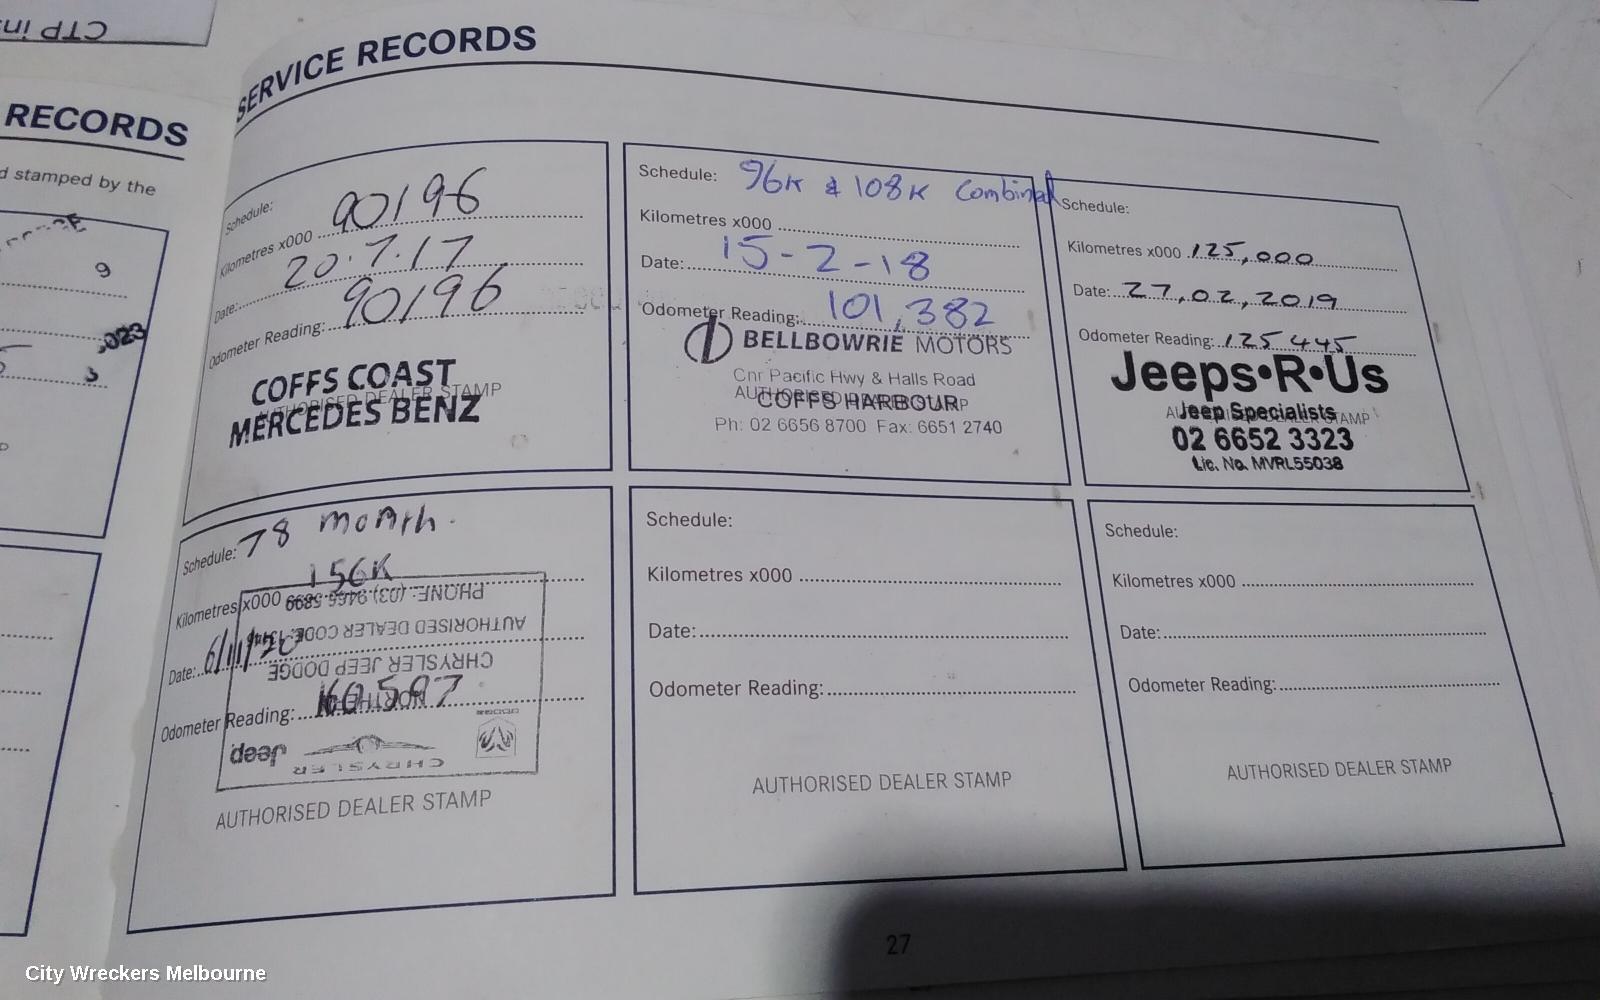 CTP in
RECORDS
d stamped by the
9
.023
3
SERVICE RECORDS
Schedule:
Kilometres x000 90196
Date: 20.7.17
Odometer Reading: 90196
AUTHORISED DEALER STAMP
COFFS COAST
MERCEDES BENZ
Schedule: 96K & 108K Combined
Kilometres x000
Date: 15-2-18
Odometer Reading: 101,382
BELLBOWRIE MOTORS
Cnr Pacific Hwy & Halls Road
AUTHORISED DEALER STAMP
COFFS HARBOUR
Ph: 02 6656 8700 Fax: 6651 2740
Schedule:
Kilometres x000 125,000
Date: 27,02,2019
Odometer Reading: 125 445
Jeeps•R•Us
AUTHORISED DEALER STAMP
Jeep Specialists
02 6652 3323
Lic. No. MVRL55038
Schedule: 78 month.
Kilometres x000 156K
Date: 6/11/20
Odometer Reading: 160597
PHONE: (03) 9466 5899
AUTHORISED DEALER CODE:
CHRYSLER JEEP DODGE
NORTHERN
DODGE
CHRYSLER
Jeep
AUTHORISED DEALER STAMP
Schedule:
Kilometres x000
Date:
Odometer Reading:
AUTHORISED DEALER STAMP
Schedule:
Kilometres x000
Date:
Odometer Reading:
AUTHORISED DEALER STAMP
27
City Wreckers Melbourne